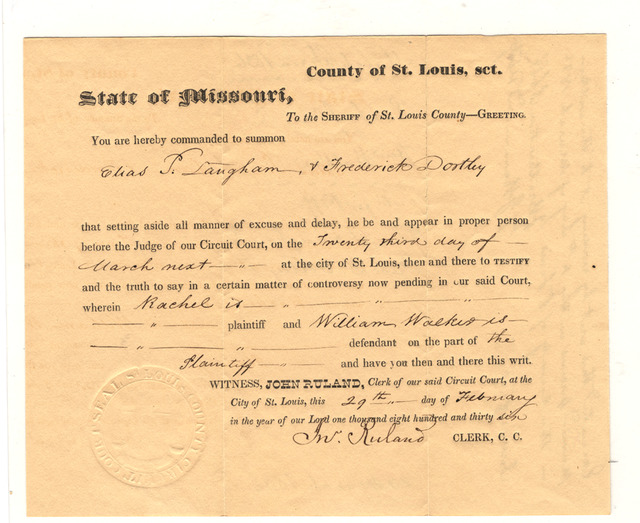 County of St. Louis, sct.
State of Missouri,
To the SHERIFF of St. Louis County—GREETING.
You are hereby commanded to summon
Elias P. Langham, & Frederick Dortley
that setting aside all manner of excuse and delay, he be and appear in proper person
before the Judge of our Circuit Court, on the Twenty third day of
March next — " — at the city of St. Louis, then and there to TESTIFY
and the truth to say in a certain matter of controversy now pending in our said Court,
wherein Rachel is — " — " — " —
— " — plaintiff and William Walker is —
— " — " — defendant on the part of the
Plaintiff — " — and have you then and there this writ.
WITNESS, JOHN RULAND, Clerk of our said Circuit Court, at the
City of St. Louis, this 29th — day of February
in the year of our Lord one thousand eight hundred and thirty six
Jno. Ruland CLERK, C. C.
SEAL ST LOUIS COUNTY CIRCUIT COURT